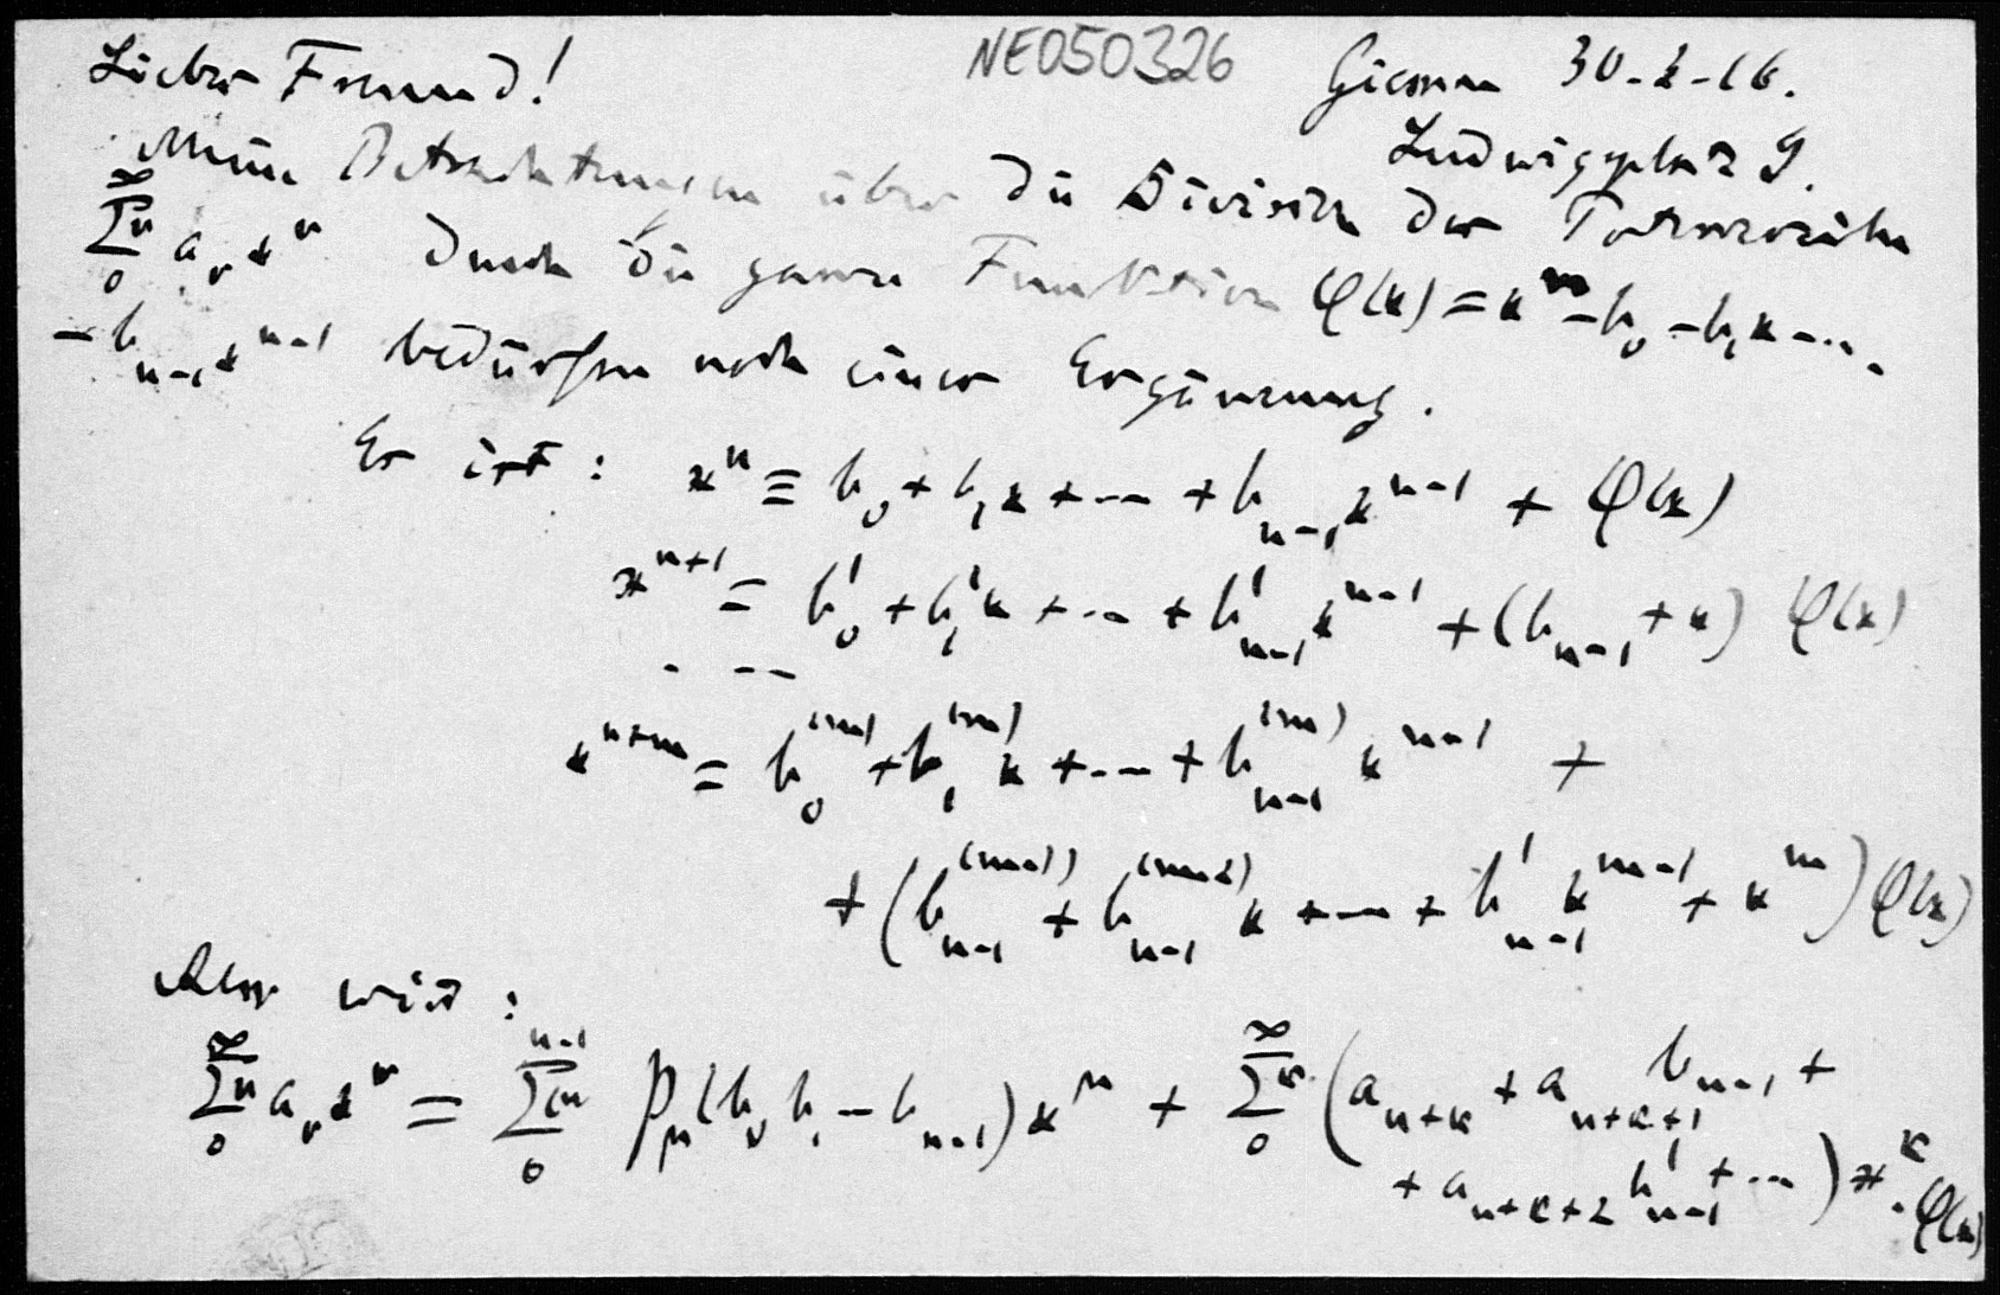 NE050326
Lieber Freund! Giessen 30-1-16.
Ludwigsplatz 9.
Meine Betrachtungen über die Division der Potenzreihe
$\sum_{0}^{\infty}{}_{\nu} a_\nu x^\nu$ durch die ganze Funktion $\varphi(x) = x^n - b_0 - b_1 x - \cdots$
$- b_{n-1} x^{n-1}$ bedürfen noch einer Ergänzung.
Es ist: $x^n \equiv b_0 + b_1 x + \cdots + b_{n-1} x^{n-1} + \varphi(x)$
$x^{n+1} = b_0' + b_1' x + \cdots + b_{n-1}' x^{n-1} + (b_{n-1} + x) \varphi(x)$
. - -
$x^{n+m} = b_0^{(m)} + b_1^{(m)} x + \cdots + b_{n-1}^{(m)} x^{n-1} +$
$+ (b_{n-1}^{(m-1)} + b_{n-1}^{(m-2)} x + \cdots + b_{n-1}' x^{m-1} + x^m) \varphi(x)$
Also wird:
$\sum_{0}^{\infty}{}_{\nu} a_\nu x^\nu = \sum_{0}^{n-1}{}_{\mu} p_\mu (b_0 b_1 - b_{n-1}) x^\mu + \sum_{0}^{\infty}{}_{\kappa} (a_{n+\kappa} + a_{n+\kappa+1} b_{n-1} +$
$+ a_{n+\kappa+2} b_{n-1}' + \cdots) x^\kappa \cdot \varphi(x)$